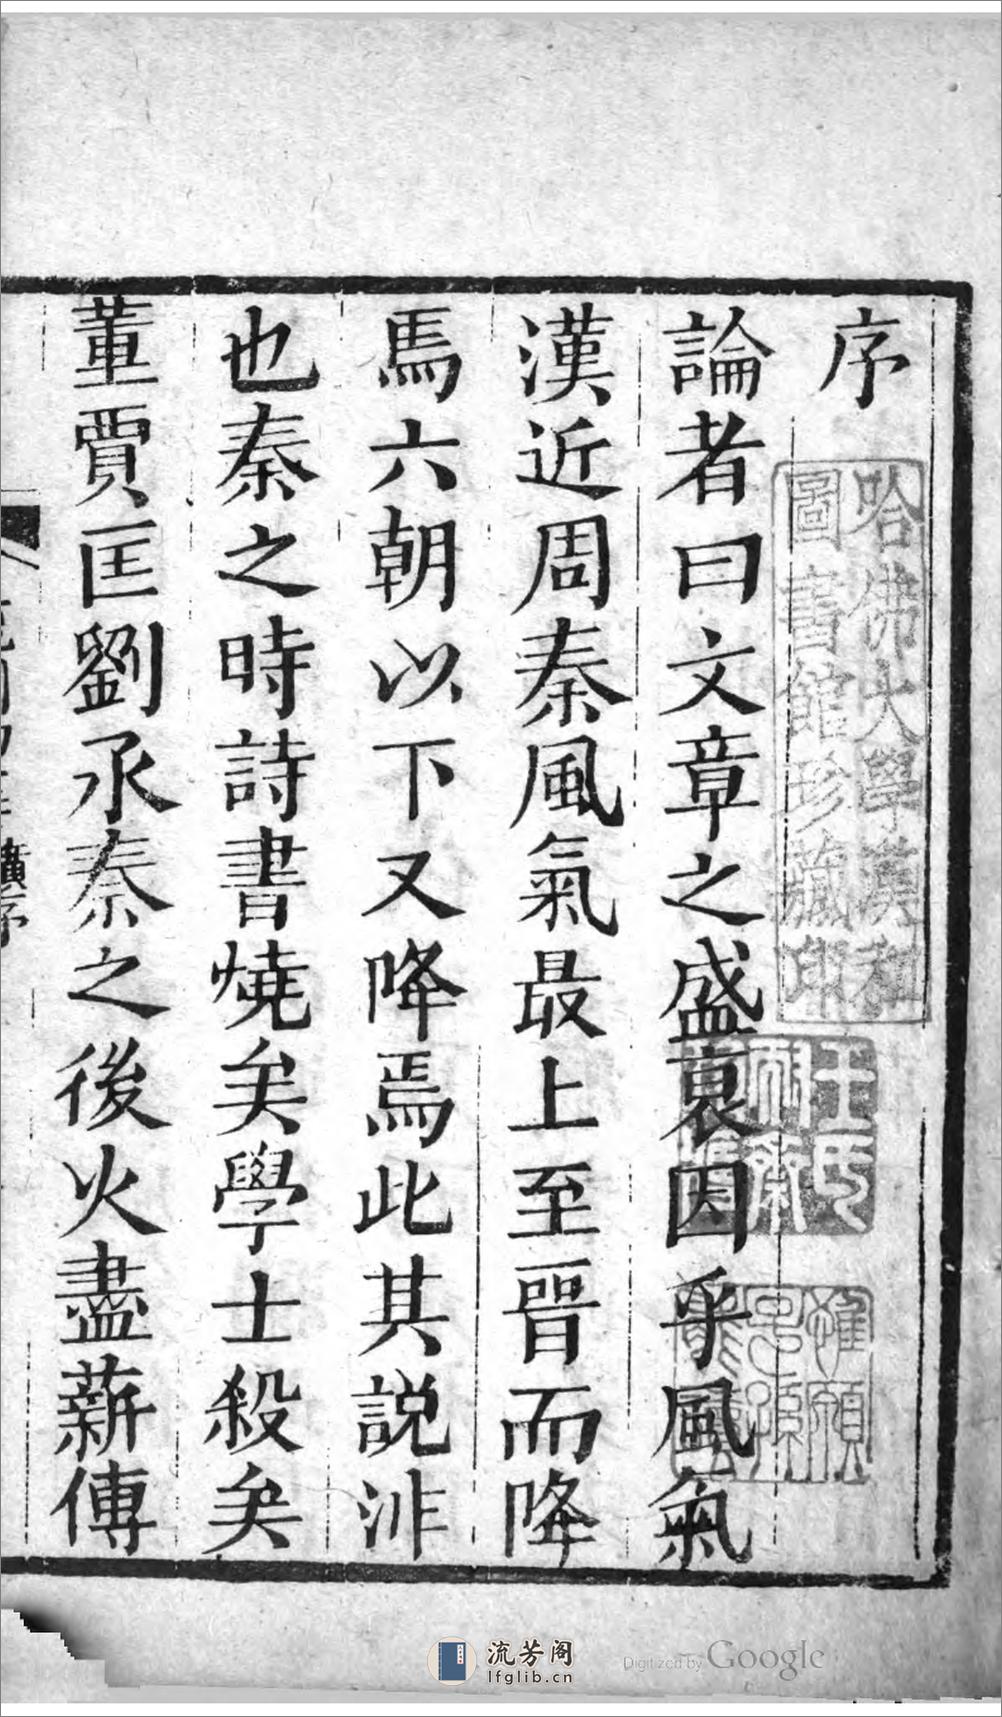 序
論者曰文章之盛衰因乎風氣
漢近周秦風氣最上至晉而降
焉六朝以下又降焉此其説非
也秦之時詩書燒矣學士殺矣
董賈匡劉承秦之後火盡薪傳
哈佛大學漢和
圖書館珍藏印
王氏
序
流芳阁
lfglib.cn
Digitized by Google